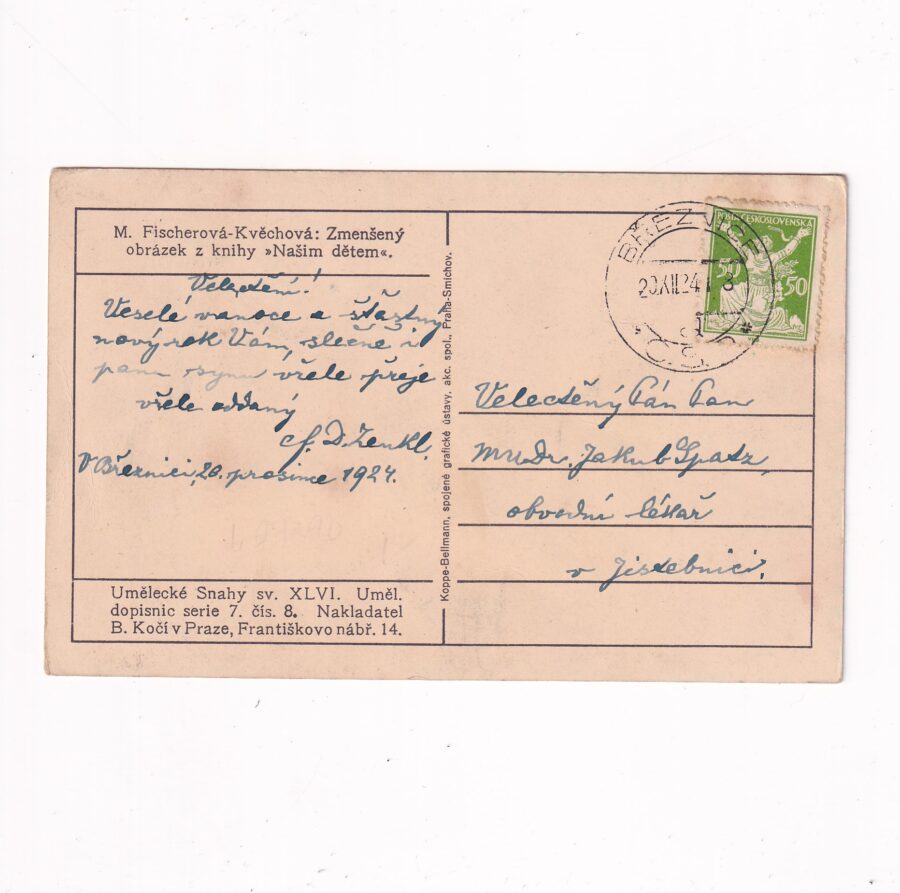 M. Fischerová-Kvěchová: Zmenšený
obrázek z knihy »Našim dětem«.
Velectění!
Veselé vanoce a šťastný
nový rok Vám, slečně i
panu synu vřele přeje
vřele oddaný
V Březnici, 20. prosince 1924.
Umělecké Snahy sv. XLVI. Uměl.
dopisnic serie 7. čís. 8. Nakladatel
B. Kočí v Praze, Františkovo nábř. 14.
Koppe-Bellmann, spojené grafické ústavy, akc. spol., Praha-Smíchov.
POŠTA ČESKOSLOVENSKÁ
50 50
BŘEZNICE
20.XII.24 8
Č.S.
Velectěný Pán Pan
MUDr. Jakub Spatz,
obvodní lékař
v Jistebnici.